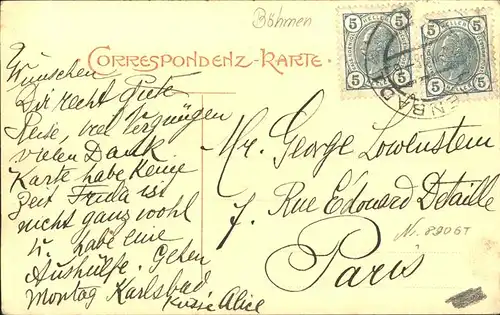 Böhmen
CORRESPONDENZ-KARTE.
5 HELLER 5
5 HELLER 5
ENBAD
Wünschen
Dir recht Gute
Reise, viel Vergnügen
vielen Dank
Karte habe keine
Zeit Frida ist
nicht ganz wohl
u. habe eine
Aushülfe. Gehen
Montag Karlsbad
Alice
Mr. George Lowenstein
7. Rue Edouard Detaille
Paris
N. 8906T